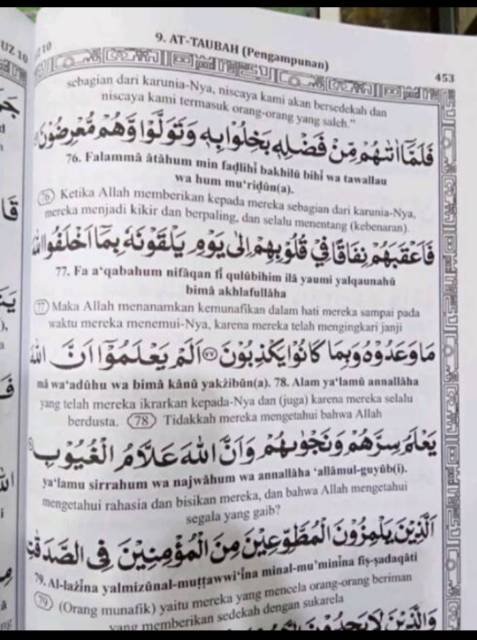 UZ 10
UZ 10
9. AT-TAUBAH (Pengampunan)
453
sebagian dari karunia-Nya, niscaya kami akan bersedekah dan
niscaya kami termasuk orang-orang yang saleh."
فَلَمَّآ اٰتٰىهُمْ مِّنْ فَضْلِهٖ بَخِلُوْا بِهٖ وَتَوَلَّوْا وَّهُمْ مُّعْرِضُوْنَ
76. Falammā ātāhum min faḍlihī bakhilū bihī wa tawallau
wa hum mu‘riḍūn(a).
76 Ketika Allah memberikan kepada mereka sebagian dari karunia-Nya,
mereka menjadi kikir dan berpaling, dan selalu menentang (kebenaran).
فَاَعْقَبَهُمْ نِفَاقًا فِيْ قُلُوْبِهِمْ اِلٰى يَوْمِ يَلْقَوْنَهٗ بِمَآ اَخْلَفُوا اللّٰهَ
77. Fa a‘qabahum nifāqan fī qulūbihim ilā yaumi yalqaunahū
bimā akhlafullāha
77 Maka Allah menanamkan kemunafikan dalam hati mereka sampai pada
waktu mereka menemui-Nya, karena mereka telah mengingkari janji
مَا وَعَدُوْهُ وَبِمَا كَانُوْا يَكْذِبُوْنَ ۝٧٧ اَلَمْ يَعْلَمُوْٓا اَنَّ اللّٰهَ
mā wa‘adūhu wa bimā kānū yakżibūn(a). 78. Alam ya‘lamū annallāha
yang telah mereka ikrarkan kepada-Nya dan (juga) karena mereka selalu
berdusta. (78) Tidakkah mereka mengetahui bahwa Allah
يَعْلَمُ سِرَّهُمْ وَنَجْوٰىهُمْ وَاَنَّ اللّٰهَ عَلَّامُ الْغُيُوْبِ
ya‘lamu sirrahum wa najwāhum wa annallāha ‘allāmul-guyūb(i).
mengetahui rahasia dan bisikan mereka, dan bahwa Allah mengetahui
segala yang gaib?
اَلَّذِيْنَ يَلْمِزُوْنَ الْمُطَّوِّعِيْنَ مِنَ الْمُؤْمِنِيْنَ فِى الصَّدَقٰتِ
79. Al-lażīna yalmizūnal-muṭṭawwi‘īna minal-mu'minīna fiṣ-ṣadaqāti
79 (Orang munafik) yaitu mereka yang mencela orang-orang beriman
yang memberikan sedekah dengan sukarela
وَالَّذِيْنَ لَا يَجِدُوْنَ